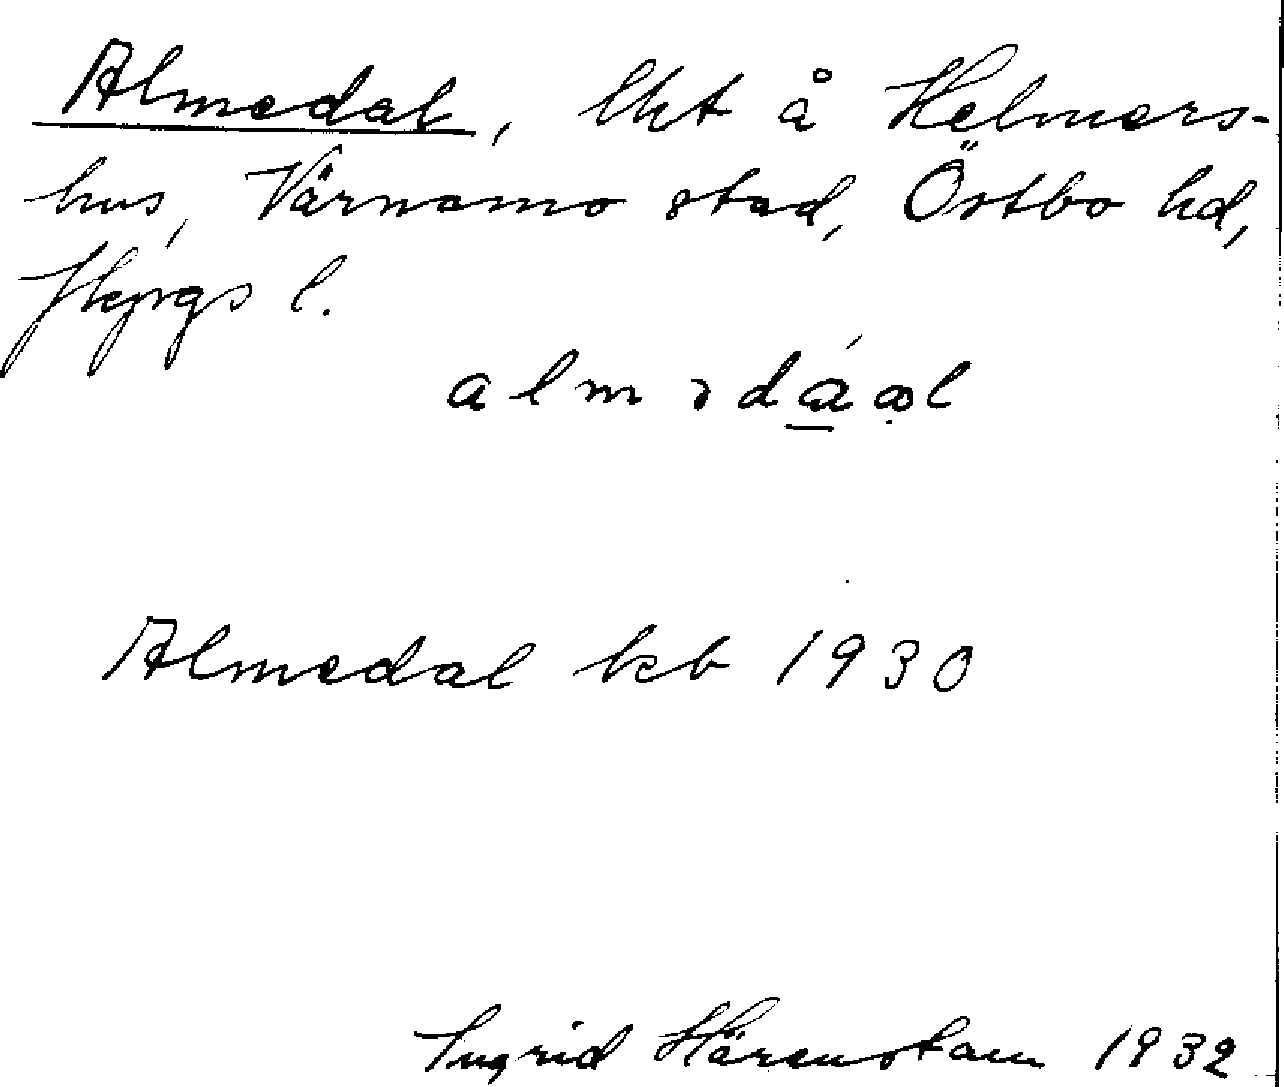 Almedal, lht å Helmers-
hus, Värnamo stad, Östbo hd,
Jkpgs l.
Almedal kb 1930
Ingrid Härenstam 1932